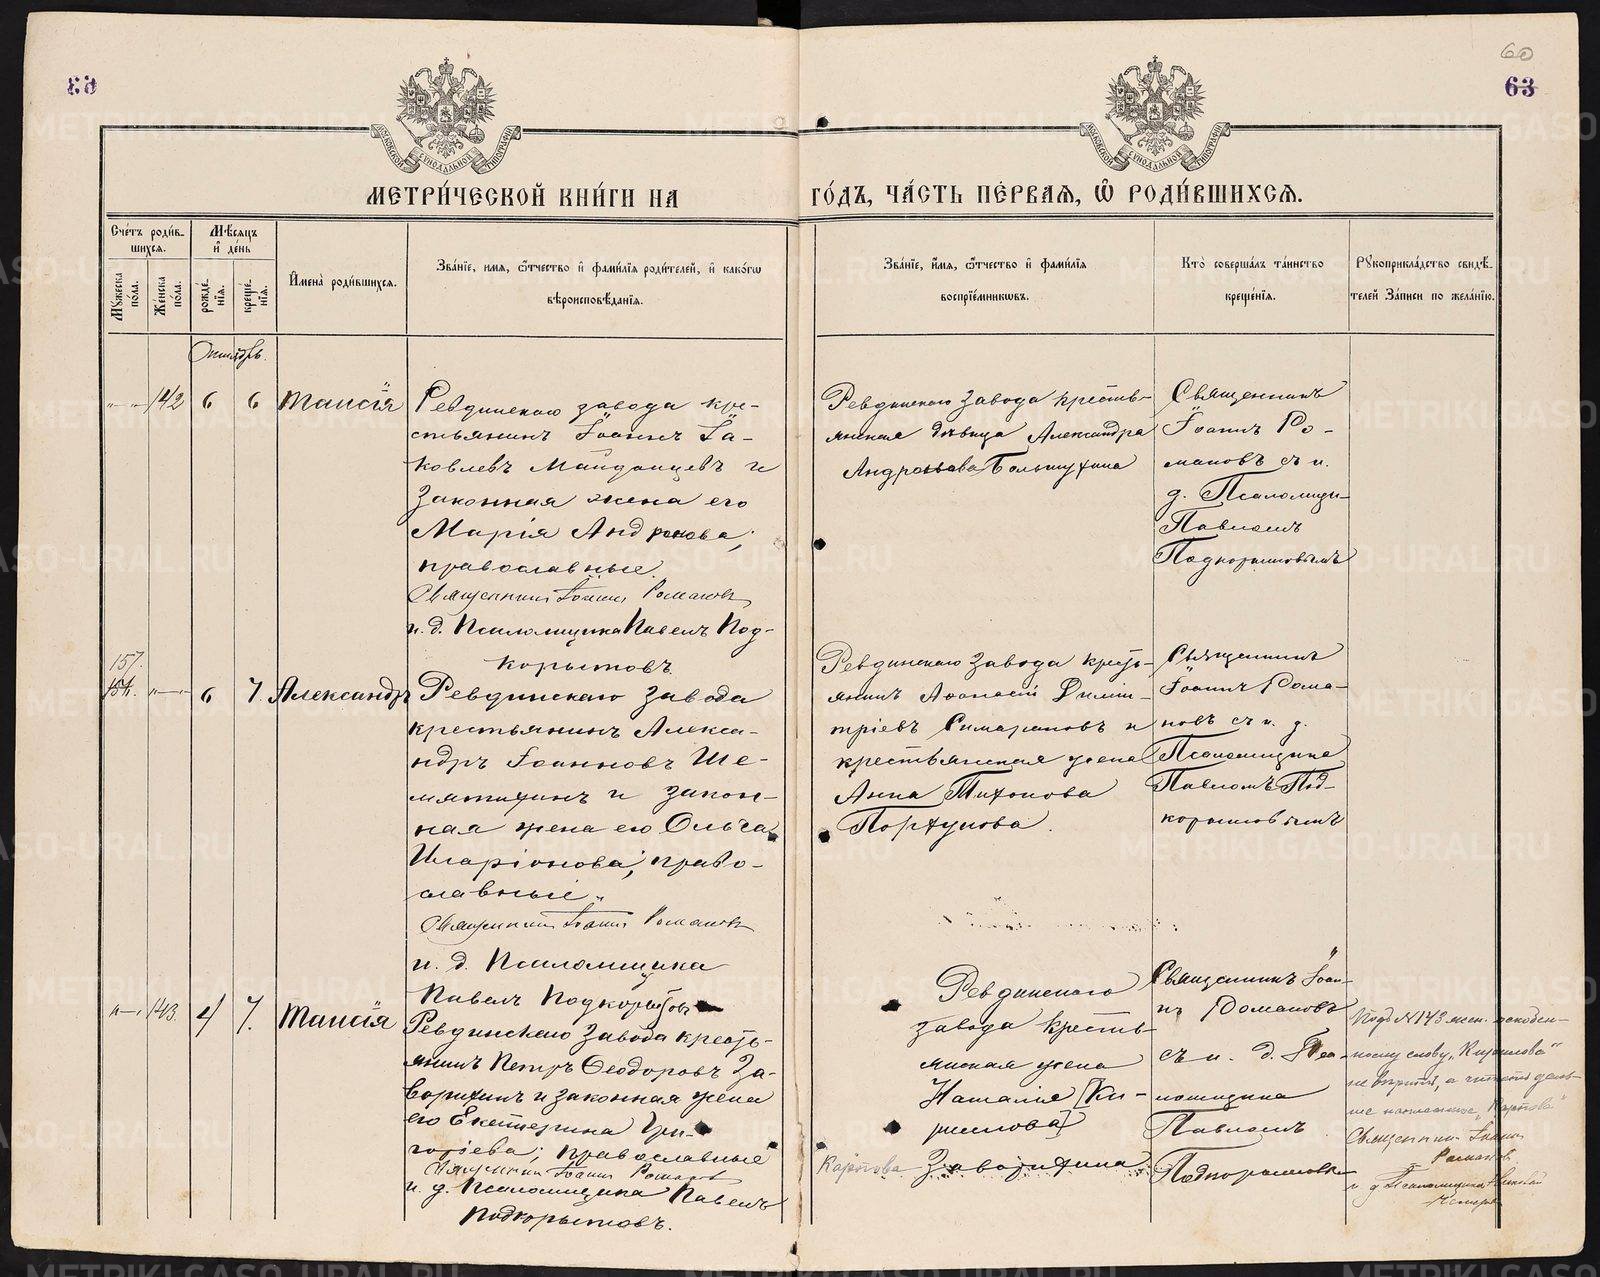 60
63
МОСКОВСКОЙ СУНОДАЛЬНОЙ ТИПОГРАФІИ
МОСКОВСКОЙ СУНОДАЛЬНОЙ ТИПОГРАФІИ
МЕТРИ́ЧЕСКОЙ КНИ́ГИ НА
ГО́ДЪ, ЧА́СТЬ ПЕ́РВАЯ, Ѡ҆ РОДИ́ВШИХСЯ.
Сче́тъ роди́в-
шихся.
Мꙋ́жеска по́ла.
Же́нска по́ла.
Мѣ́сяцъ
и҆ де́нь
рожде́-
нїя.
креще́-
нїя.
И҆мена̀ роди́вшихся.
Зва́нїе, и҆́мя, ѻ҆́тчество и҆ фами́лїя роди́телей, и҆ како́гѡ
вѣроисповѣ́данїя.
Зва́нїе, и҆́мя, ѻ҆́тчество и҆ фами́лїя
восприє́мникѡвъ.
Кто̀ соверша́лъ та́инство
креще́нїя.
Рꙋкоприкла́дство свидѣ́-
телей За́писи по жела́нїю.
Октябрь.
142
6
6
Таисія
Ревдинскаго завода кре-
стьянинъ Іоаннъ Іа-
ковлевъ Майданцевъ и
законная жена его
Марія Андронова;
православные.
Священникъ Іоаннъ Романовъ
и. д. Псаломщика Павелъ Под-
корытовъ.
Ревдинскаго завода кресть-
янская дѣвица Александра
Священникъ
Іоаннъ Ро-
мановъ съ и.
д. Псаломщи-
Павломъ
Подкорытовымъ
157.
6
7.
Александръ
Ревдинскаго завода
крестьянинъ Алекса-
ндръ Іоанновъ Ше-
мятихинъ и закон-
ная жена его Ольга
Иларіонова; право-
славные.
Священникъ Іоаннъ Романовъ
и. д. Псаломщика
Павелъ Подкорытовъ
Ревдинскаго завода кресть-
янинъ Афанасій Димит-
тріевъ и
крестьянская жена
Анна Тихонова
Порхунова.
Священникъ
Іоаннъ Рома-
новъ съ и. д.
Псаломщика
Павломъ Под-
корытовымъ
143.
4
7.
Таисія
Ревдинскаго завода кресть-
янинъ Петръ Ѳеодоровъ За-
ворихинъ и законная жена
его Екатерина Гри-
горіева; православные
Священникъ Іоаннъ Романовъ
и. д. Псаломщика Павелъ
Подкорытовъ.
Ревдинскаго
завода кресть-
янская жена
Наталія [Ки-
рилова]
Карпова Заворихина
Священникъ Іоан-
нъ Романовъ
съ и. д. Пса-
ломщика
Павломъ
Подкорытовы
Подъ №143
слову „Кирилова“
не вѣрить, а читать
„Карпова“
Священникъ Іоаннъ
Романовъ
и д Псаломщика